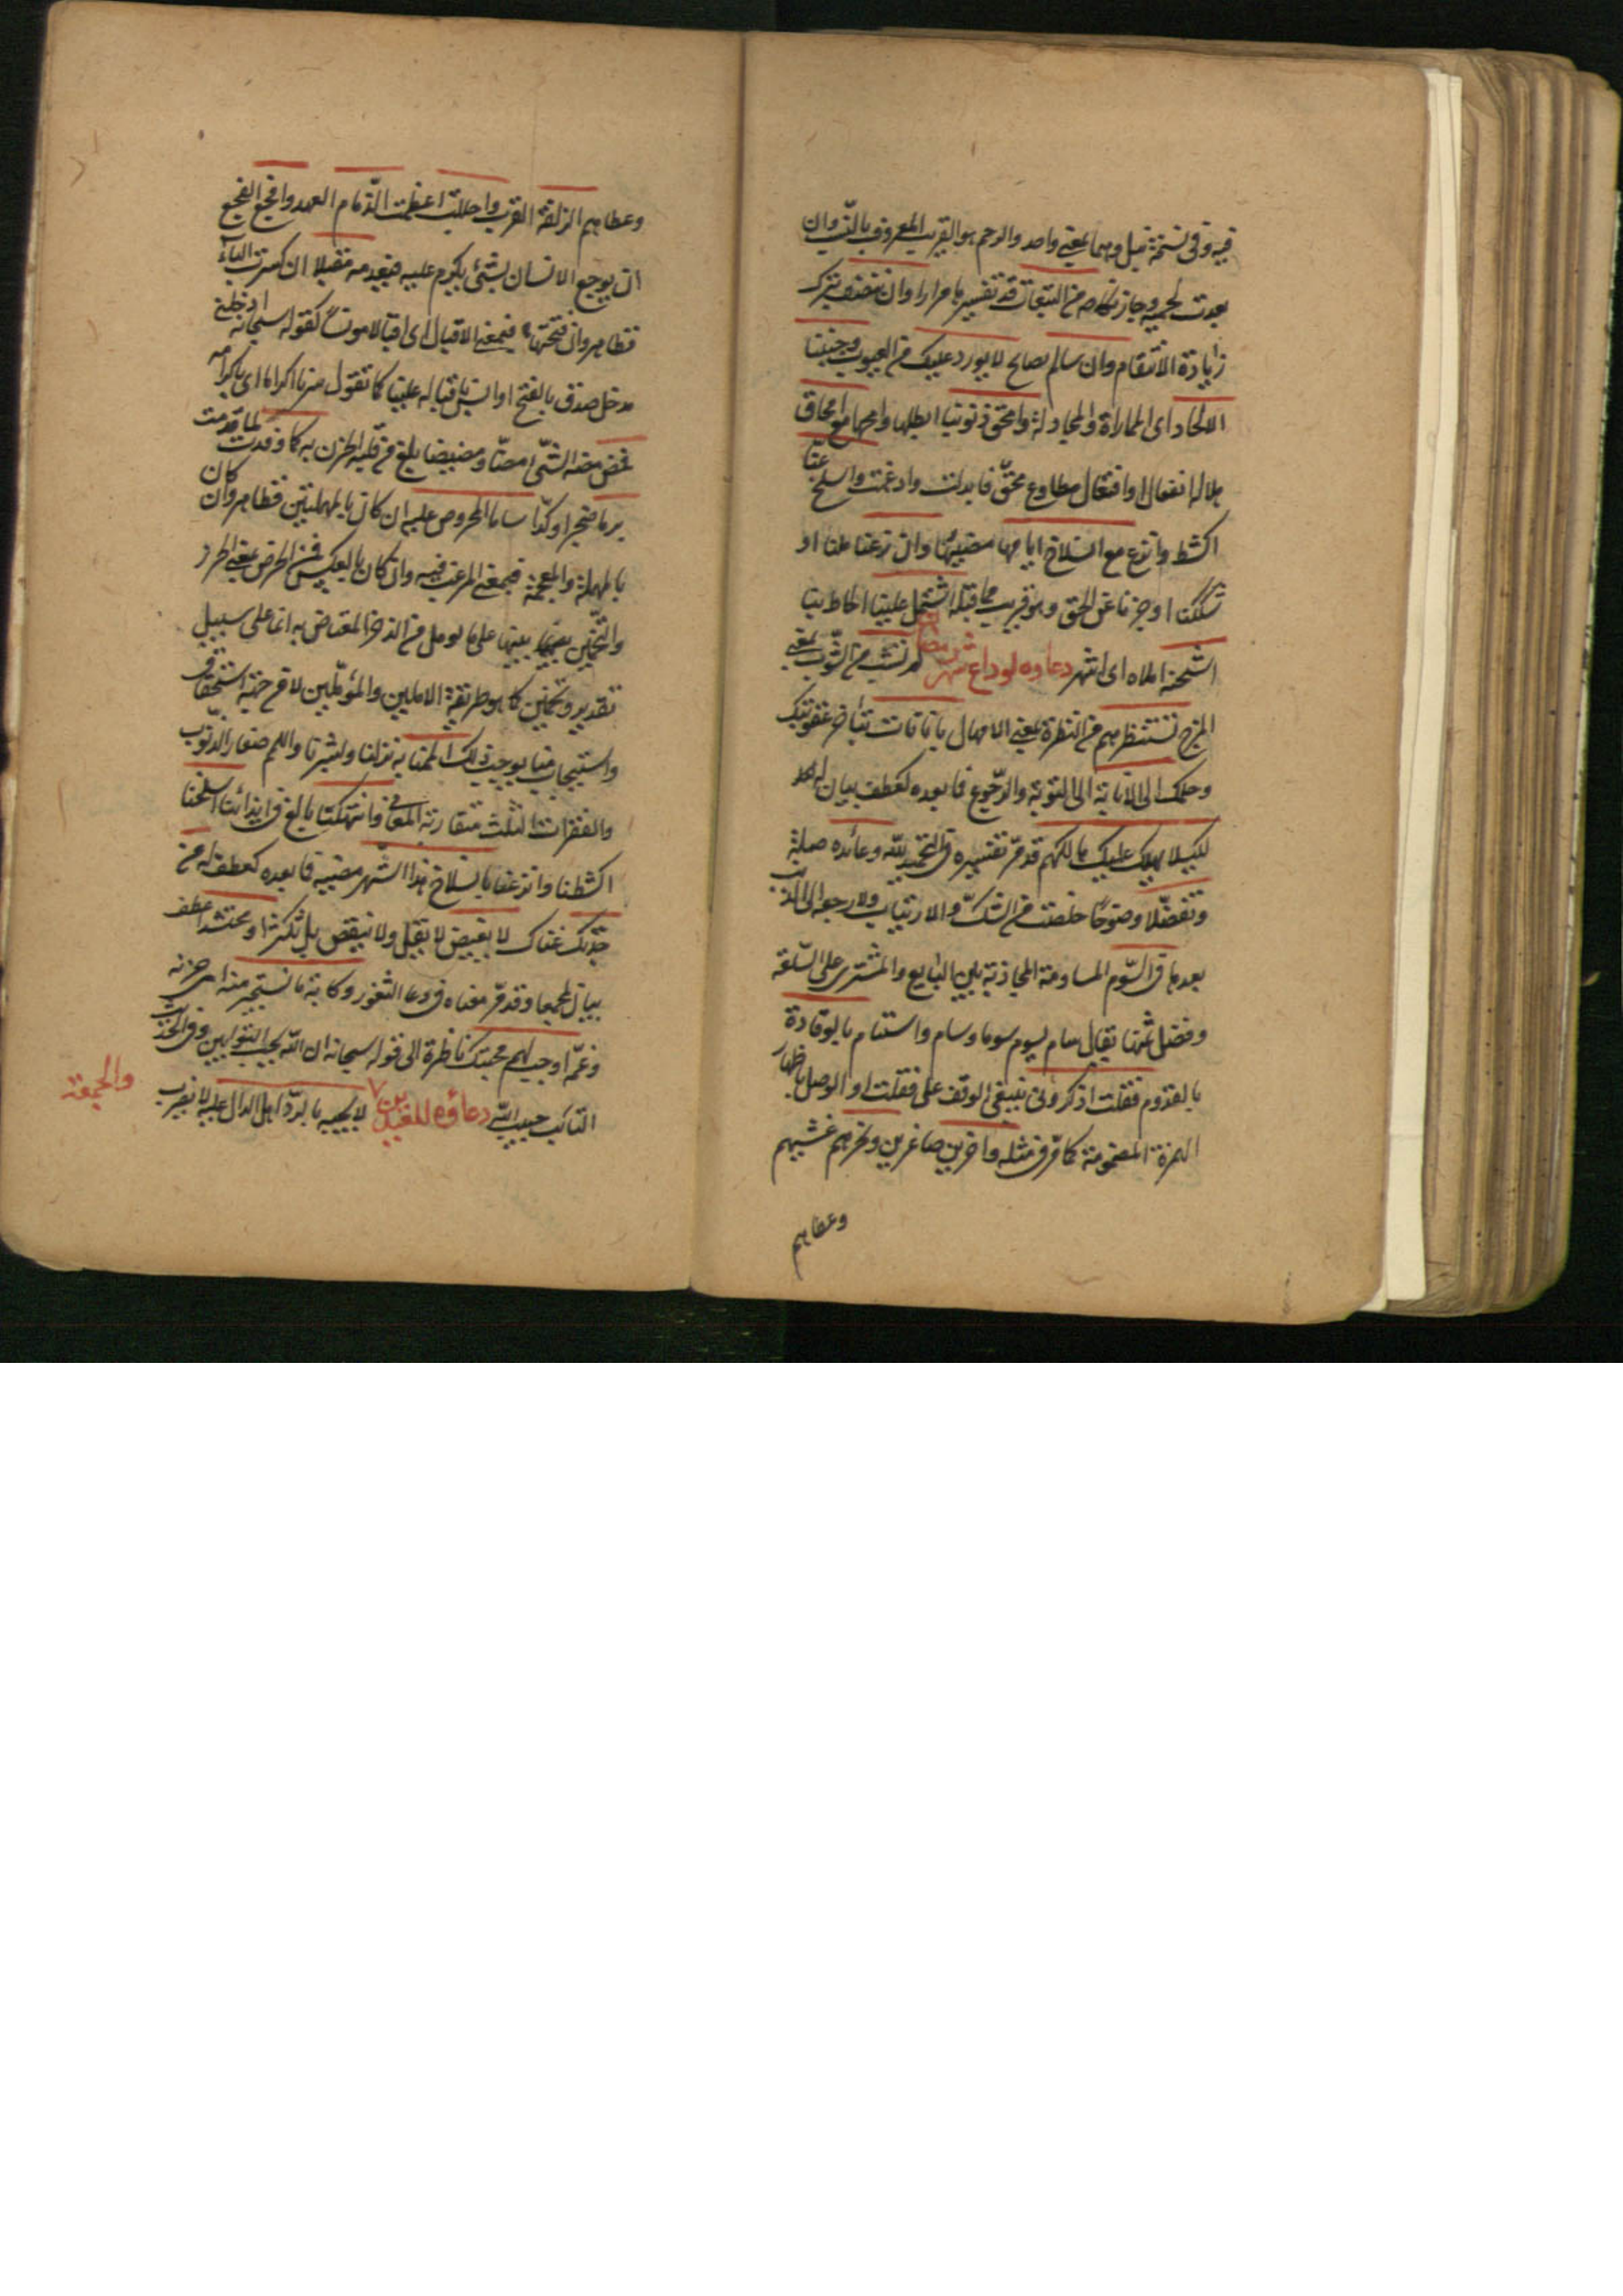 فيه وفى نسخة قيل وهما بمعنى واحد والرحم هو القريب المعروف بالنسب وان
بعدت لحمته وجاز نكاحه من التبعات قد تفسيرها مرارا وان نتقرب
زيادة الانتقام وان سالم يصالح لا يورد عليك من العيوب وجنبنا
الالحاد اى المماراة والمجادلة وامحق ذنوبنا ابطلها وامحها مع امحاق
هلاله انفعال او افتعال مطاوع محق فابدلت وادغمت واسلخ عنا
اكشط وانزع مع انسلاخ ايامها مضيها وان زغنا ملنا او
شككنا او جزنا عن الحق وهو قريب مما قبله اشتمل علينا احاط بنا
اشحنه املاه اى اشهر دعاؤه لوداع شهر رمضان لم تشب من الشوب بمعنى
المزج تستنظرهم من النظرة بمعنى الامهال باناتك بتاخر عقوبتك
وحلمك الى الانابة الى التوبة والرجوع فما بعده كعطف بيان له
لكيلا يهلك عليك هالكهم قد مر تفسيره فى التحميد لله وعائده صلة
وتفضلا ونصوحا خلصت من الشك والارتياب ولا رجعة الى الذنب
بعدها فى السوم المساومة المجاذبة بين البايع والمشترى على السلعة
وفضل ثمنها يقال سام يسوم سوما وساوم واستام بالوفادة
بالقدوم فقلت اذكرونى ينبغى الوقف على فقلت او الوصل باظهار
الهمزة المضمومة كما مر فى مثله واخرين صاغرين ونحرهم غشيهم
وغطاهم
وغطاهم الزلفة القرب واجللت اعظمت الذمام العهد وافجع الفجع
ان يوجع الانسان بشئ يكرم عليه فيعدمه مقبلا ان كسرت الباء
فظاهر وان فتحتها فبمعنى الاقبال اى اقبالا مونسا كقوله سبحانه ادخلنى
مدخل صدق بالفتح او انس باقباله علينا كما تقول ضربنا اكراما اى باكرامه
فمض مضه الشئ مضا ومضيضا بلغ من قلبه الحزن به كما وفدت لما قدمت
برما ضجرا وكذا ساما المحروص عليه ان كان بالمهملتين فظاهر وان كان
بالمهملة والمعجمة فبمعنى المرغب فيه وان كان بالعكس فمن الحرض بمعنى الطرد
والتخمين بينهما بينها على ما يومل من الذخر المعتاض به انما على سبيل
تقدير وتخمين كما هو طريقة الاملين والمؤملين لا من جهة استحقاق
واستيجاب منا يوجب ذلك الممنا به نزلنا وباشرنا واللمم صغار الذنوب
والفقرات الثلث متقاربة المعانى وانتهكنا بالغ فى ايذائنا اسلخنا
اكشطنا وانزعنا بانسلاخ هذا الشهر مضيه فما بعده كعطف له من
جدتك غناك لا يغيض لا يقل ولا ينقص بل تكثر او محتشد اعطف
بيان لمجمعا وقد مر معناه فى دعا الثغور وكابة ما نستجير منه اى حزنه
وغمه اوجب لهم محبتك ناظرة الى قوله سبحانه ان الله يحب التوابين وفى الحديث
التائب حبيب الله دعاؤه للعيدين لا يجبه بالرد اهل الدال عليه لا يضرب
والجمعة